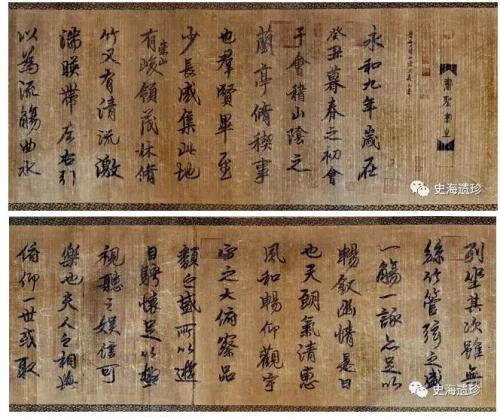 永和九年歲在
癸丑暮春之初會
于會稽山陰之
蘭亭脩禊事
也群賢畢至
少長咸集此地
有崇山峻領茂林脩
竹又有清流激
湍暎帶左右引
以為流觴曲水
史海遗珍
列坐其次雖無
絲竹管弦之盛
一觴一詠亦足以
暢叙幽情是日
也天朗氣清惠
風和暢仰觀宇
宙之大俯察品
類之盛所以遊
目騁懷足以極
視聽之娛信可
樂也夫人之相與
俯仰一世或取
史海遗珍